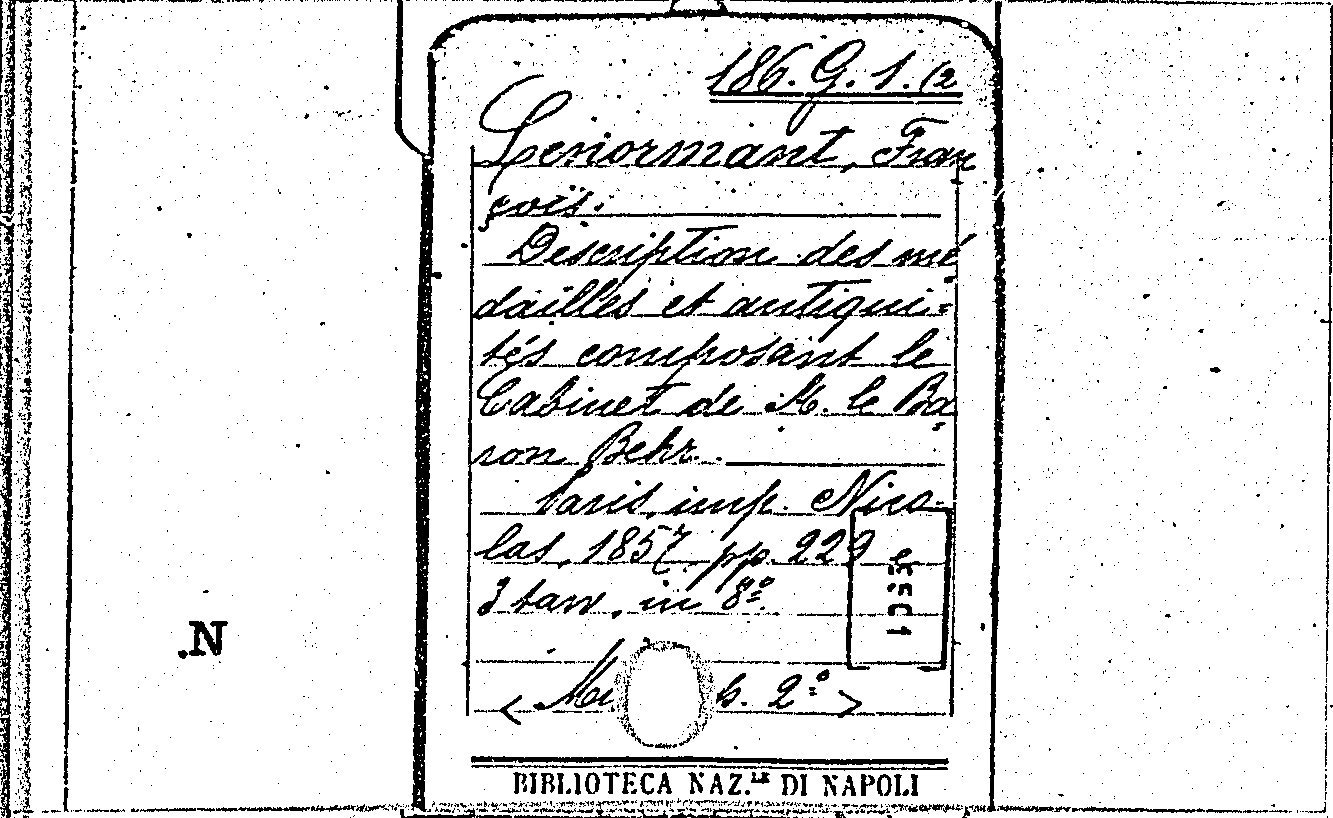 186. G. 1. (2
Lenormant, Fran
çois.
Description des mé
dailles et antiqui=
tés composant le
Cabinet de M. le Ba=
ron Behr.
Paris, imp. Nico-
las, 1857, pp. 229
3 tav, in 8º.
< b. 2º >
.N
BIBLIOTECA NAZ.LE DI NAPOLI